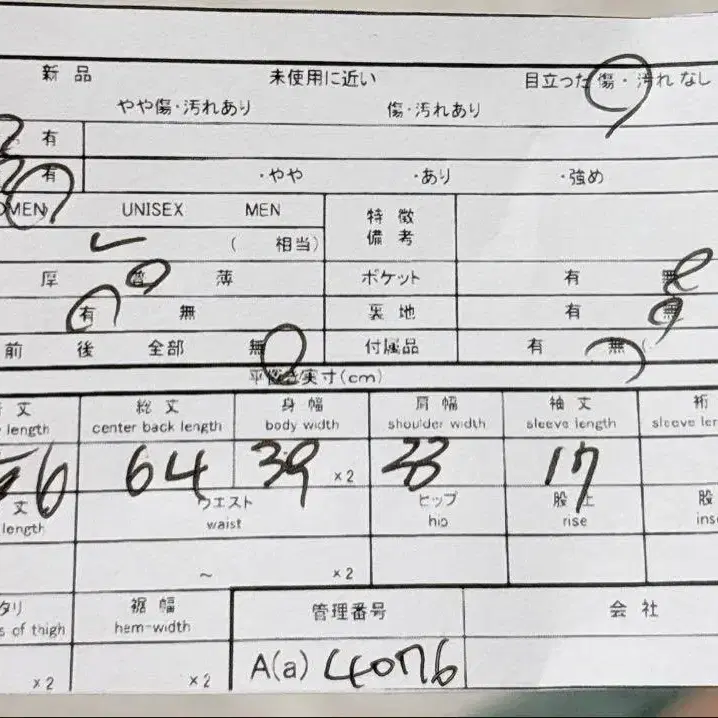 新品 未使用に近い 目立った傷・汚れなし
やや傷・汚れあり 傷・汚れあり
有
有 ・やや ・あり ・強め
OMEN UNISEX MEN 特徴
備考
( 相当)
厚 普 薄 ポケット 有 無
有 無 裏地 有 無
前 後 全部 無 付属品 有 無 (
平置き実寸(cm)
丈 総丈 身幅 肩幅 袖丈 裄
length center back length body width shoulder width sleeve length sleeve
64 39 ×2 33 17
丈 ウエスト ヒップ 股上 股
length waist hip rise ins
~ ×2
タリ 裾幅 管理番号 会社
s of thigh hem-width
×2 ×2 A(a) 4076